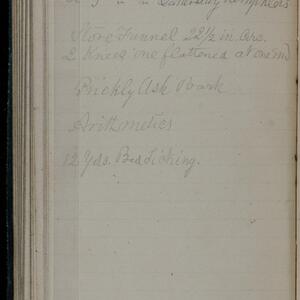 Stove Funnel 22½ in. Circ.
2 Knees one flattened at one end
Prickly Ash Bark
Arithmetics
12 Yds. Bed Ticking.